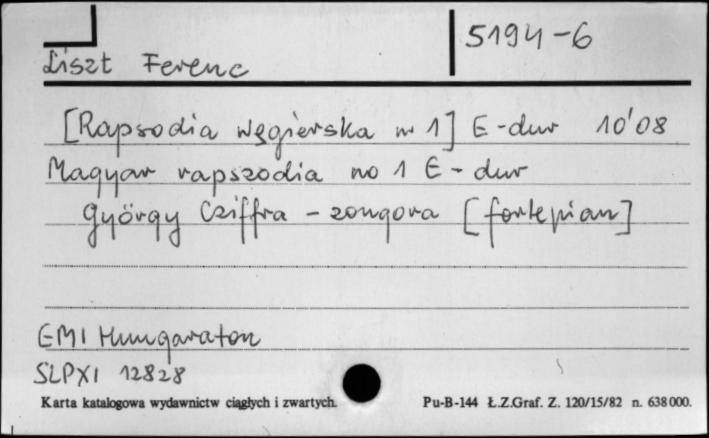 5194-6
Liszt Ferenc
[Rapsodia węgierska nr 1] E-dur 10'08
Magyar rapszodia no 1 E-dur
György Cziffra - zongora [fortepian]
EMI Hungaroton
SLPXI 12828
Karta katalogowa wydawnictw ciągłych i zwartych.
Pu-B-144 Ł.Z.Graf. Z. 120/15/82 n. 638 000.